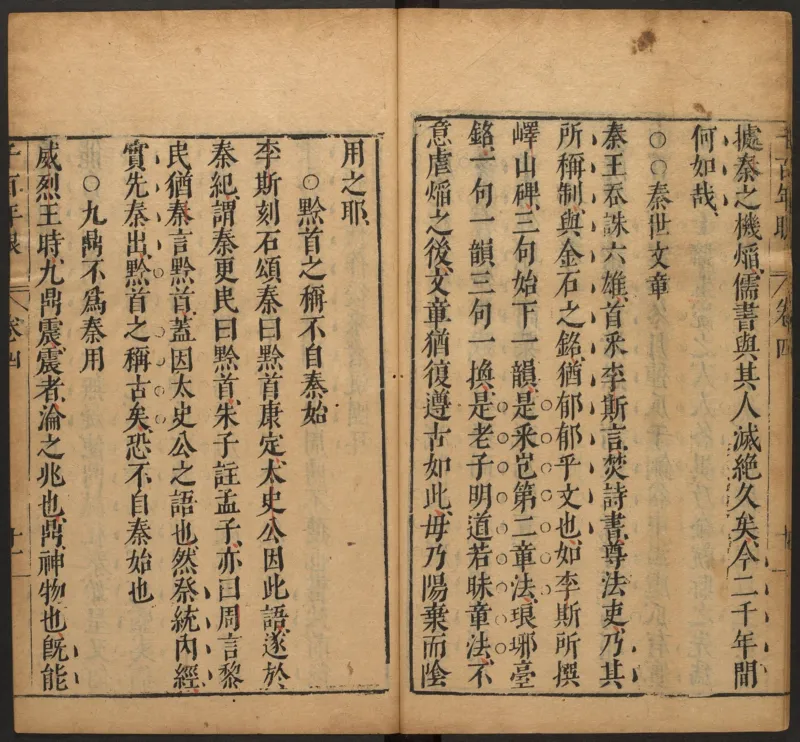 據秦之機焰儒書與其人滅絕久矣今二千年間
何如哉
○○秦世文章
秦王吞誅六雄首釆李斯言焚詩書尊法吏乃其
所稱制與金石之銘猶郁郁乎文也如李斯所撰
嶧山碑三句始下一韻是釆芑第二章法琅琊臺
銘一句一韻三句一換是老子明道若昧章法不
意虐焰之後文章猶復遵古如此毋乃陽棄而陰
用之耶
○黔首之稱不自秦始
李斯刻石頌秦曰黔首康定太史公因此語遂於
秦紀謂秦更民曰黔首朱子註孟子亦曰周言黎
民猶秦言黔首蓋因太史公之語也然祭統內經
實先秦出黔首之稱古矣恐不自秦始也
○九鼎不爲秦用
威烈王時九鼎震震者淪之兆也鼎神物也旣能
千百年眼
卷四
十一